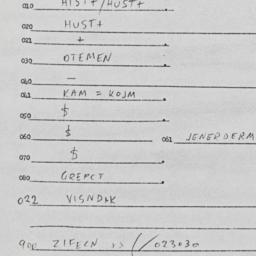 010 HIST+/HUST+
020 HUST+
021 +
030 OTEMEN
040 —
041 KAM = KOJM
050 $
060 $ 061 JENERDERM
070 $
080 GREPCT
022 VISNDAK
900 ZIFECN 023030